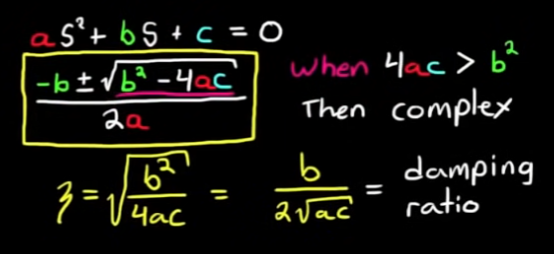 as² + bs + c = 0
-b ± √(b² - 4ac)
2a
When 4ac > b²
Then complex
ζ = √(b²/4ac) = b/(2√ac) = damping ratio